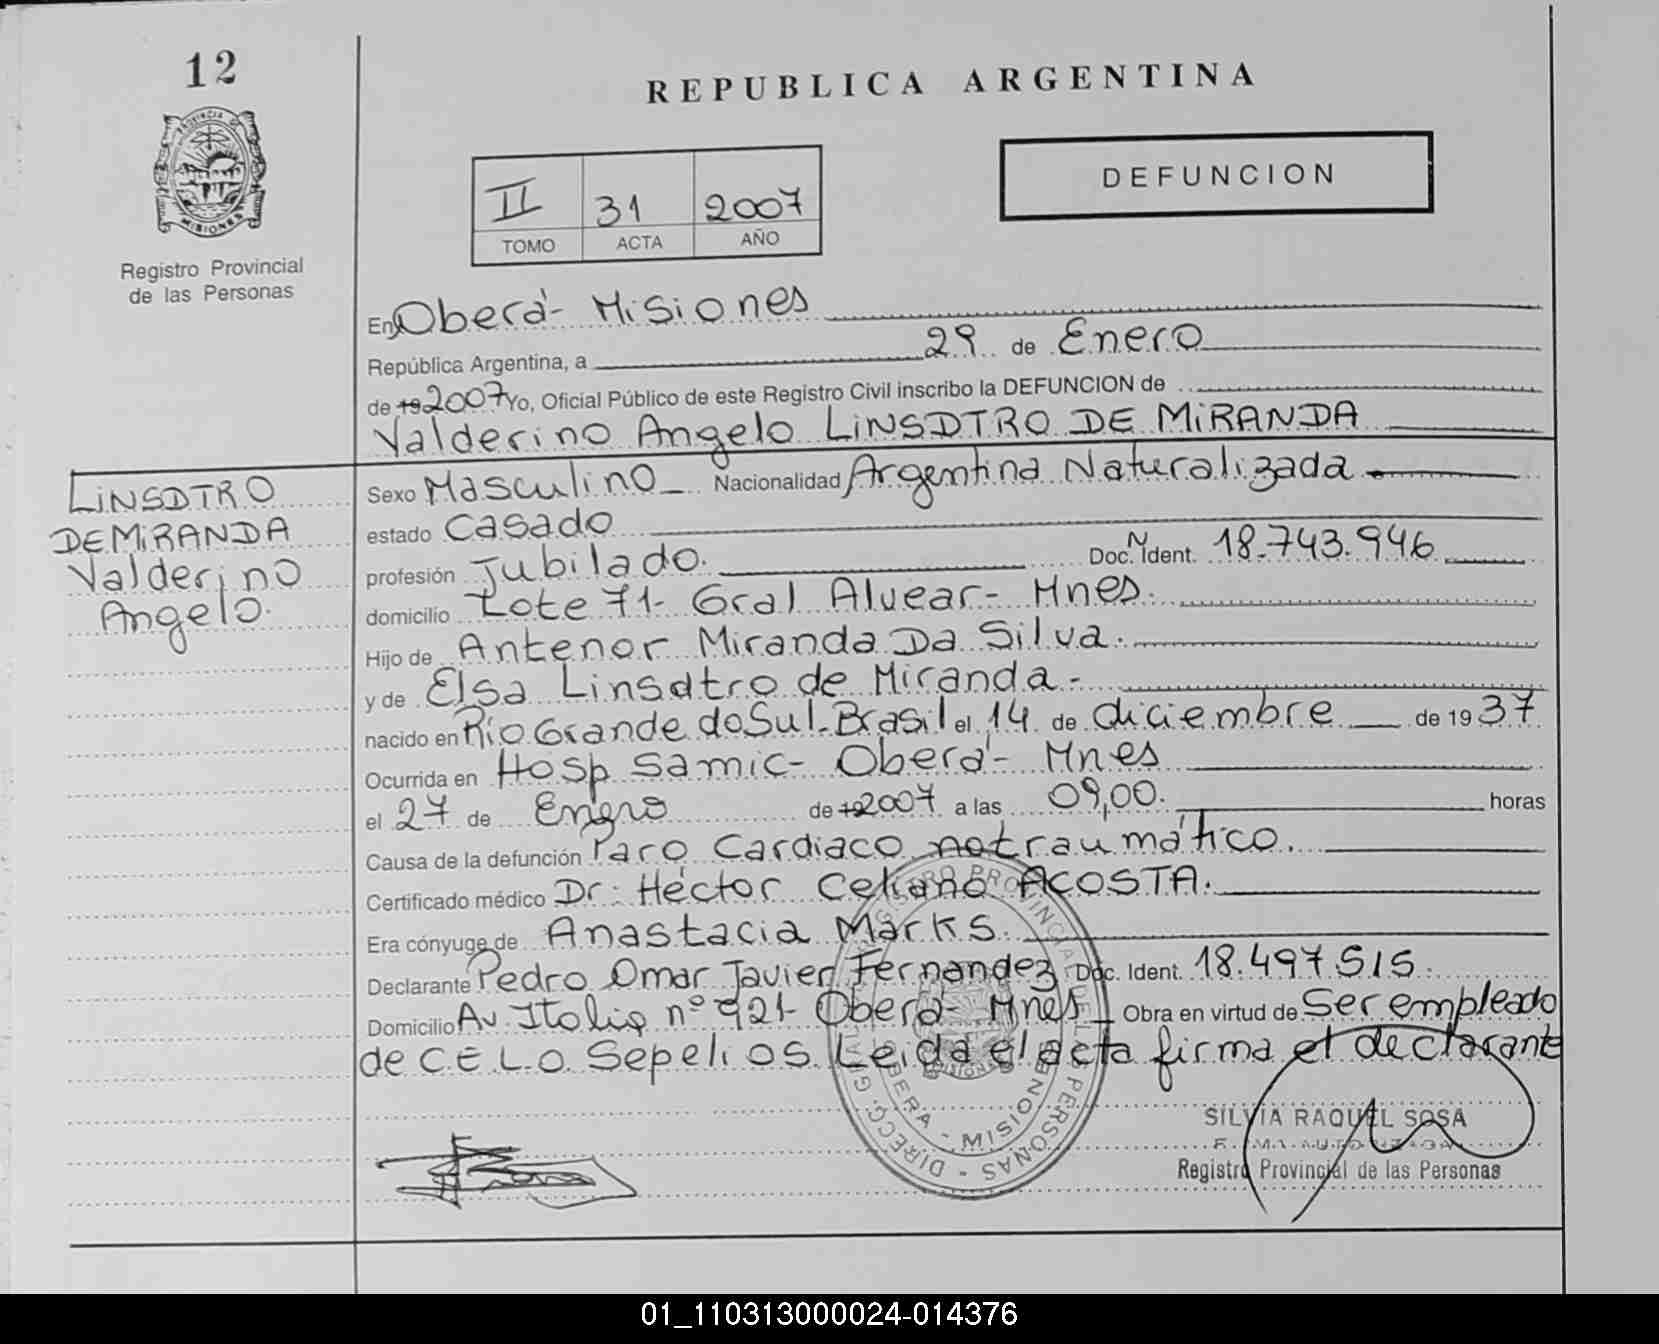 12
REPUBLICA ARGENTINA
PROVINCIA DE
MISIONES
Registro Provincial
de las Personas
II 31 2007
TOMO ACTA AÑO
DEFUNCION
En Oberá- Misiones
República Argentina, a 29 de Enero
de 19 2007 Yo, Oficial Público de este Registro Civil inscribo la DEFUNCION de
Valderino Angelo LiNSDTRO DE MiRANDA
LiNSDTRO
DE MiRANDA
Valderino
Angelo.
Sexo Masculino Nacionalidad Argentina Naturalizada
estado Casado
profesión Jubilado. Doc. N Ident. 18.743.946
domicilio Lote 71- Gral Alvear- Mnes.
Hijo de Antenor Miranda Da Silva.
y de Elsa Linsdtro de Miranda.
nacido en Rio Grande do Sul-Brasil el 14 de diciembre de 19 37
Ocurrida en Hosp Samic- Oberá- Mnes
el 27 de Enero de 19 2007 a las 09,00. horas
Causa de la defunción Paro Cardiaco notraumático.
Certificado médico Dr: Héctor Celiano ACOSTA.
Era cónyuge de Anastacia Marks.
Declarante Pedro Omar Javier Fernandez Doc. Ident. 18.497.515.
Domicilio Av. Italia n° 921- Oberá- Mnes Obra en virtud de Ser empleado
de C.E.L.O. Sepelios. Leida el acta firma el declarante
OBERA - MISIONES
SILVIA RAQUEL SOSA
FIRMA AUTORIZADA
Registro Provincial de las Personas
01_110313000024-014376